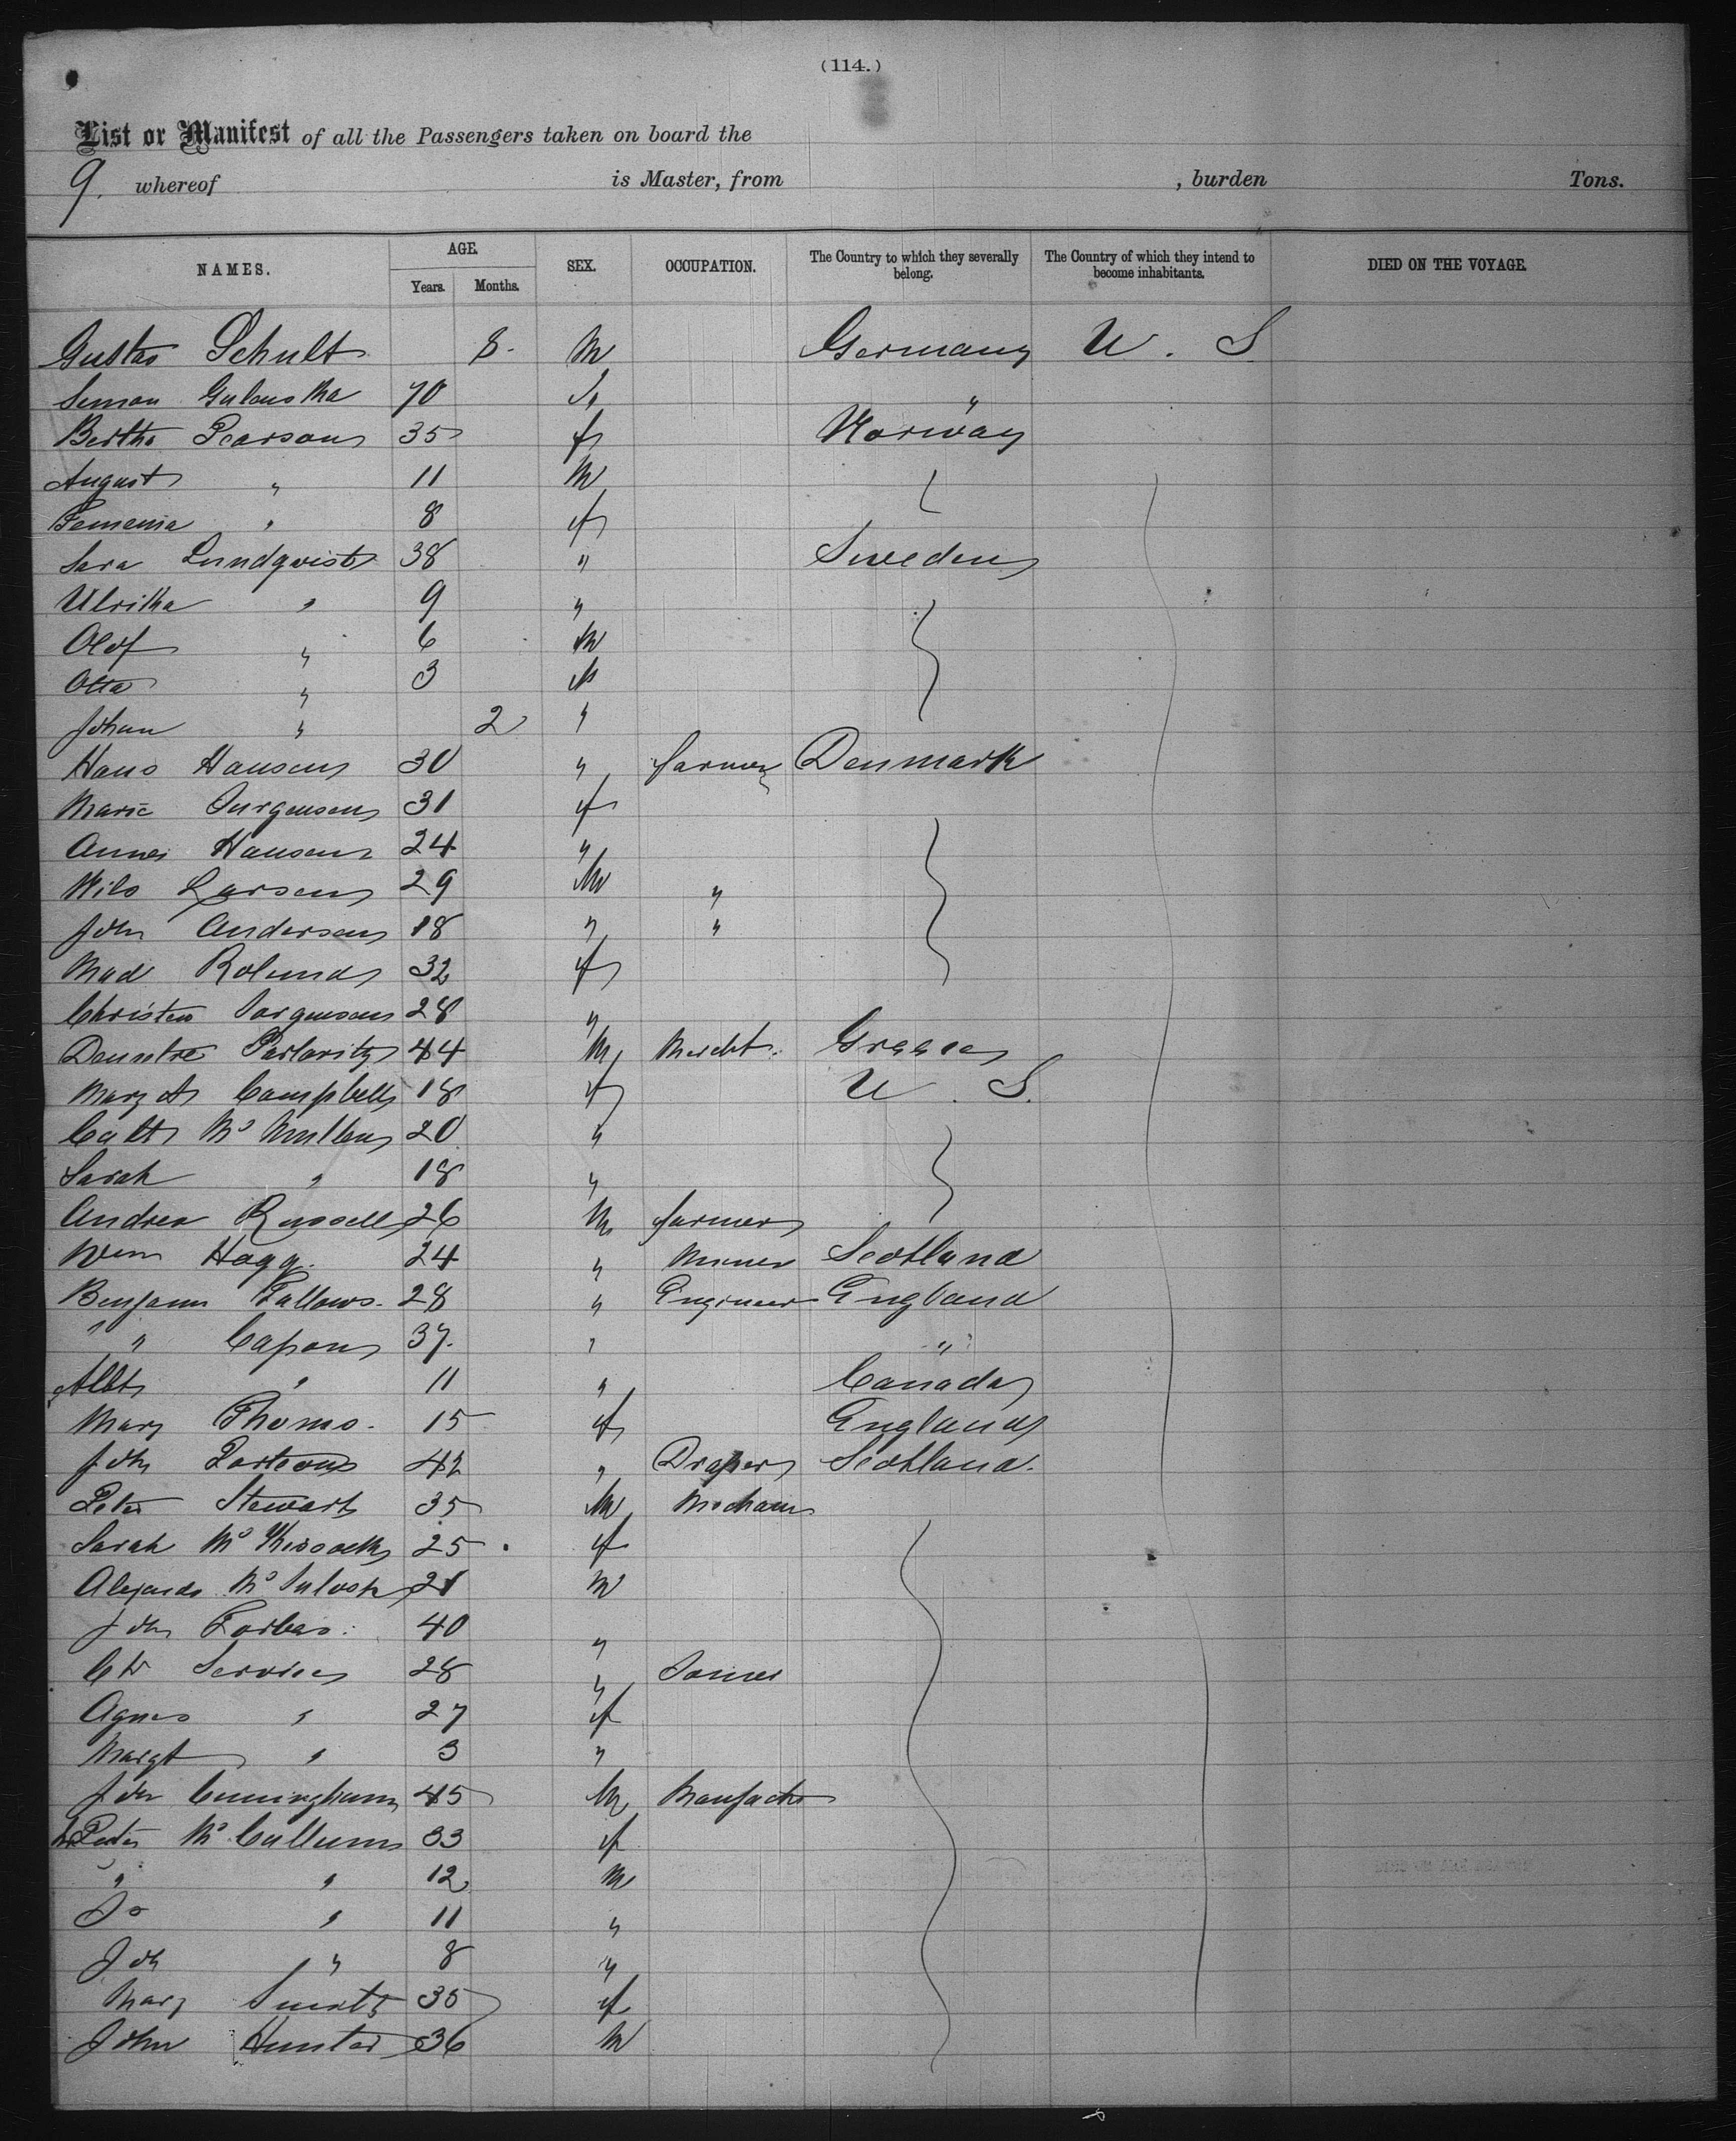 (114.)
List or Manifest of all the Passengers taken on board the
9. whereof is Master, from , burden Tons.
NAMES. AGE. Years. Months. SEX. OCCUPATION. The Country to which they severally belong. The Country of which they intend to become inhabitants. DIED ON THE VOYAGE.
Gustav Schult 8. M Germany U. S
Simon 70 "
Bertha Pearson 35 f Norway
August " 11 M
" 8 f
Sara Lundqvist 38 " Sweden
Ulrika " 9 "
Olof " 6 M
Otto " 3
Johan " 2 "
Hans Hansen 30 " farmer Denmark
Marie Jurgensen 31 f
Anna Hansen 24 "
Nils Larsen 29 M "
John Andersen 18 " "
Mad 32 f
Christen Jorgensen 28 "
44 M Mercht. Greece
Mary A Campbell 18 f U. S.
Cath Mc Mullen 20 "
Sarah " 18 "
Andrew Russell 26 M farmer
Wm Hagg. 24 " Miner Scotland
Benjamin Fallows. 28 " Engineer England
" " Capon 37. " "
Albt " 11 " Canada
Mary Thoms. 15 f England
John Porteous 42 " Draper Scotland.
Peter Stewart 35 M Mechanic
Sarah Mc Kissock 25 f
Mc Intosh 21 M
John Forbes. 40 "
Services 28 " Joiner
Agnes " 27 f
Margt " 3 "
John Cuningham 45 M Manfactr
Mrs Peter Mc Callum 33 f
" " 12 M
Do " 11 "
Joh " 8 "
Mary 35 f
John Hunter 36 M